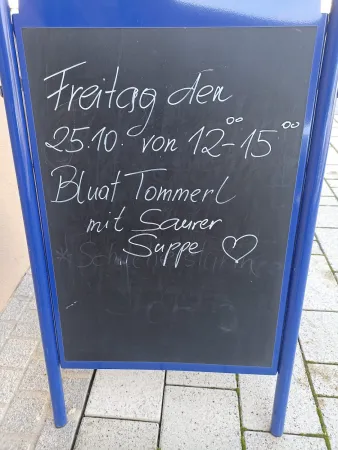 Freitag den
25.10. von 12⁰⁰-15⁰⁰
Bluat Tommerl
mit Saurer
Suppe ♡